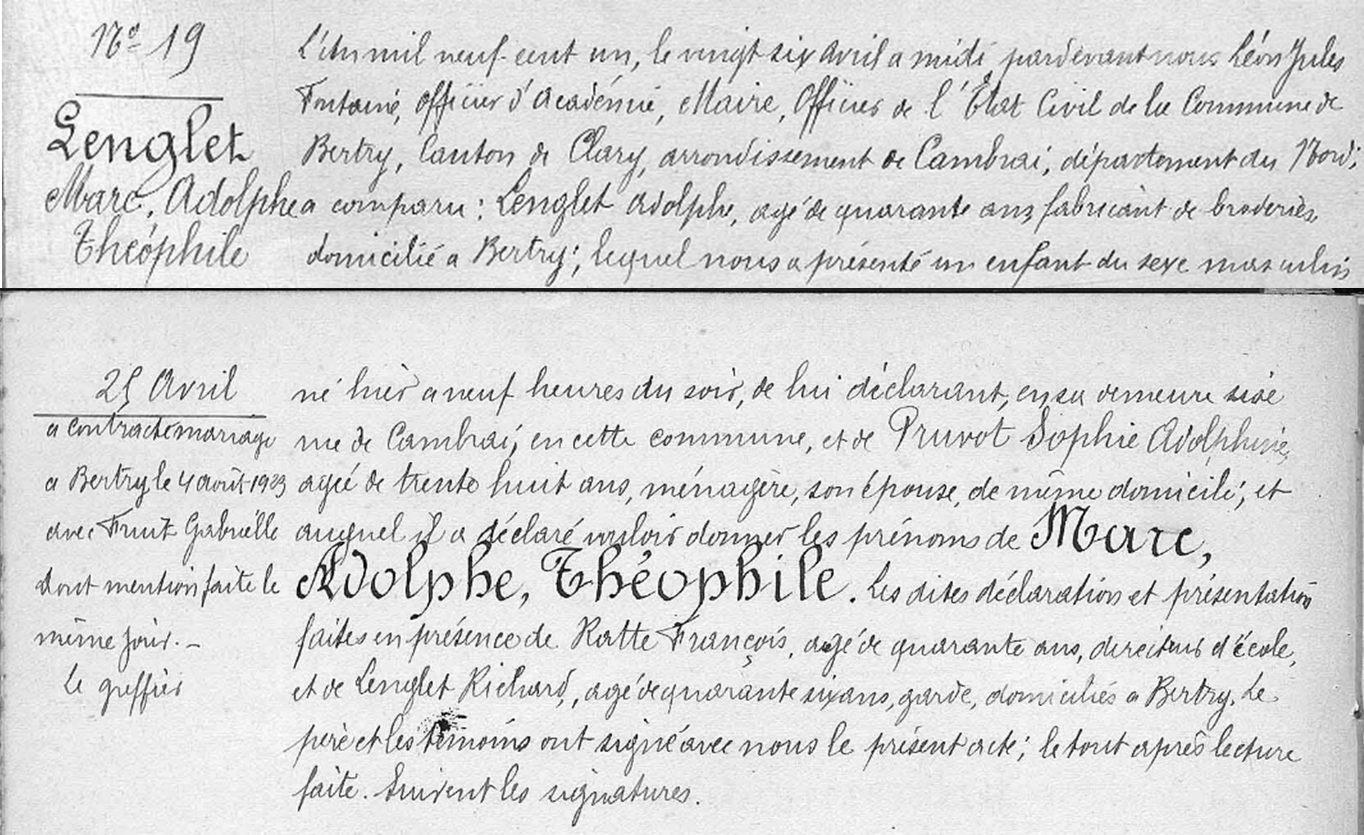 Nº 19
Lenglet
Marc, Adolphe
Théophile
L'An mil neuf cent un, le vingt six avril a midi pardevant nous Léon Jules
Fontaine, officier d'Académie, Maire, Officier de l'État Civil de la Commune de
Bertry, Canton de Clary, arrondissement de Cambrai, département du Nord;
a comparu: Lenglet Adolphe, agé de quarante ans fabricant de broderies
domicilié a Bertry; lequel nous a présenté un enfant du sexe masculin
25 Avril
a contracté mariage
a Bertry le 4 août 1923
avec Fruit Gabrielle
dont mention faite le
même jour. -
le greffier
né hier a neuf heures du soir, de lui déclarant, en sa demeure sise
rue de Cambrai, en cette commune, et de Pruvot Sophie Adolphine,
agée de trente huit ans, ménagère, son épouse, de même domicile; et
auquel il a déclaré vouloir donner les prénoms de Marc,
Adolphe, Théophile. Les dites déclaration et présentation
faites en présence de Ratte François, agé de quarante ans, directeur d'école,
et de Lenglet Richard, agé de quarante six ans, garde, domiciliés a Bertry. Le
père et les témoins ont signé avec nous le présent acte; le tout après lecture
faite. Suivent les signatures.